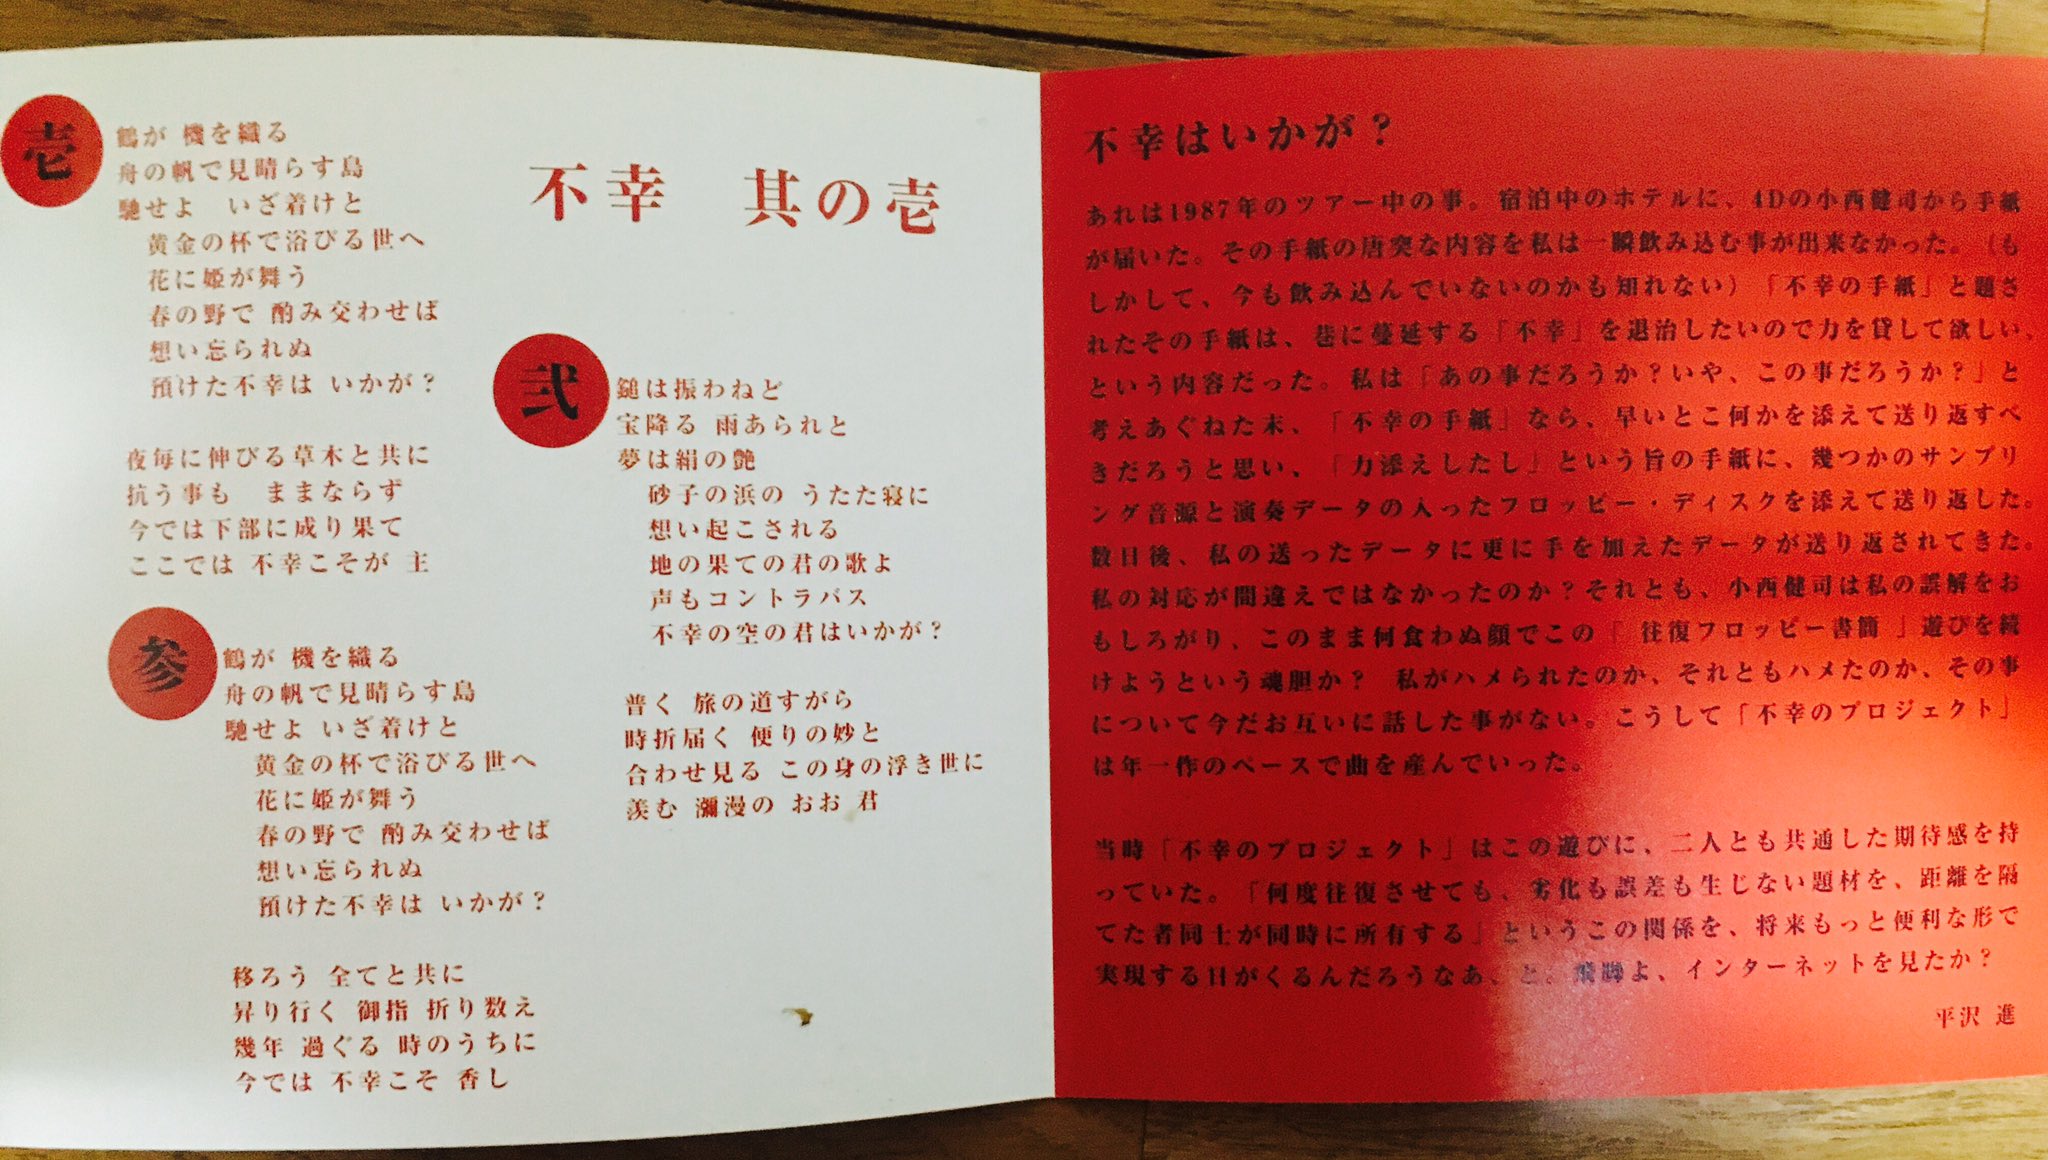 不幸 其の壱
壱
鶴が 機を織る
舟の帆で見晴らす島
馳せよ いざ着けと
黄金の杯で浴びる世へ
花に姫が舞う
春の野で 酌み交わせば
想い忘られぬ
預けた不幸は いかが？
夜毎に伸びる草木と共に
抗う事も ままならず
今では下部に成り果て
ここでは 不幸こそが 主
弐
鎚は振わねど
宝降る 雨あられと
夢は絹の艶
砂子の浜の うたた寝に
想い起こされる
地の果ての君の歌よ
声もコントラバス
不幸の空の君はいかが？
普く 旅の道すがら
時折届く 便りの妙と
合わせ見る この身の浮き世に
羨む 瀰漫の おお 君
参
鶴が 機を織る
舟の帆で見晴らす島
馳せよ いざ着けと
黄金の杯で浴びる世へ
花に姫が舞う
春の野で 酌み交わせば
想い忘られぬ
預けた不幸は いかが？
移ろう 全てと共に
昇り行く 御指 折り数え
幾年 過ぐる 時のうちに
今では 不幸こそ 香し
不幸はいかが？
あれは1987年のツアー中の事。宿泊中のホテルに、4Dの小西健司から手紙
が届いた。その手紙の唐突な内容を私は一瞬飲み込む事が出来なかった。（も
しかして、今も飲み込んでいないのかも知れない）「不幸の手紙」と題さ
れたその手紙は、巷に蔓延する「不幸」を退治したいので力を貸して欲しい、
という内容だった。私は「あの事だろうか？いや、この事だろうか？」と
考えあぐねた末、「不幸の手紙」なら、早いとこ何かを添えて送り返すべ
きだろうと思い、「力添えしたし」という旨の手紙に、幾つかのサンプリ
ング音源と演奏データの入ったフロッピー・ディスクを添えて送り返した。
数日後、私の送ったデータに更に手を加えたデータが送り返されてきた。
私の対応が間違えではなかったのか？それとも、小西健司は私の誤解をお
もしろがり、このまま何食わぬ顔でこの「 往復フロッピー書簡 」遊びを続
けようという魂胆か？ 私がハメられたのか、それともハメたのか、その事
について今だお互いに話した事がない。こうして「不幸のプロジェクト」
は年一作のペースで曲を産んでいった。
当時「不幸のプロジェクト」はこの遊びに、二人とも共通した期待感を持
っていた。「何度往復させても、劣化も誤差も生じない題材を、距離を隔
てた者同士が同時に所有する」というこの関係を、将来もっと便利な形で
実現する日がくるんだろうなあ、と。飛脚よ、インターネットを見たか？
平沢 進